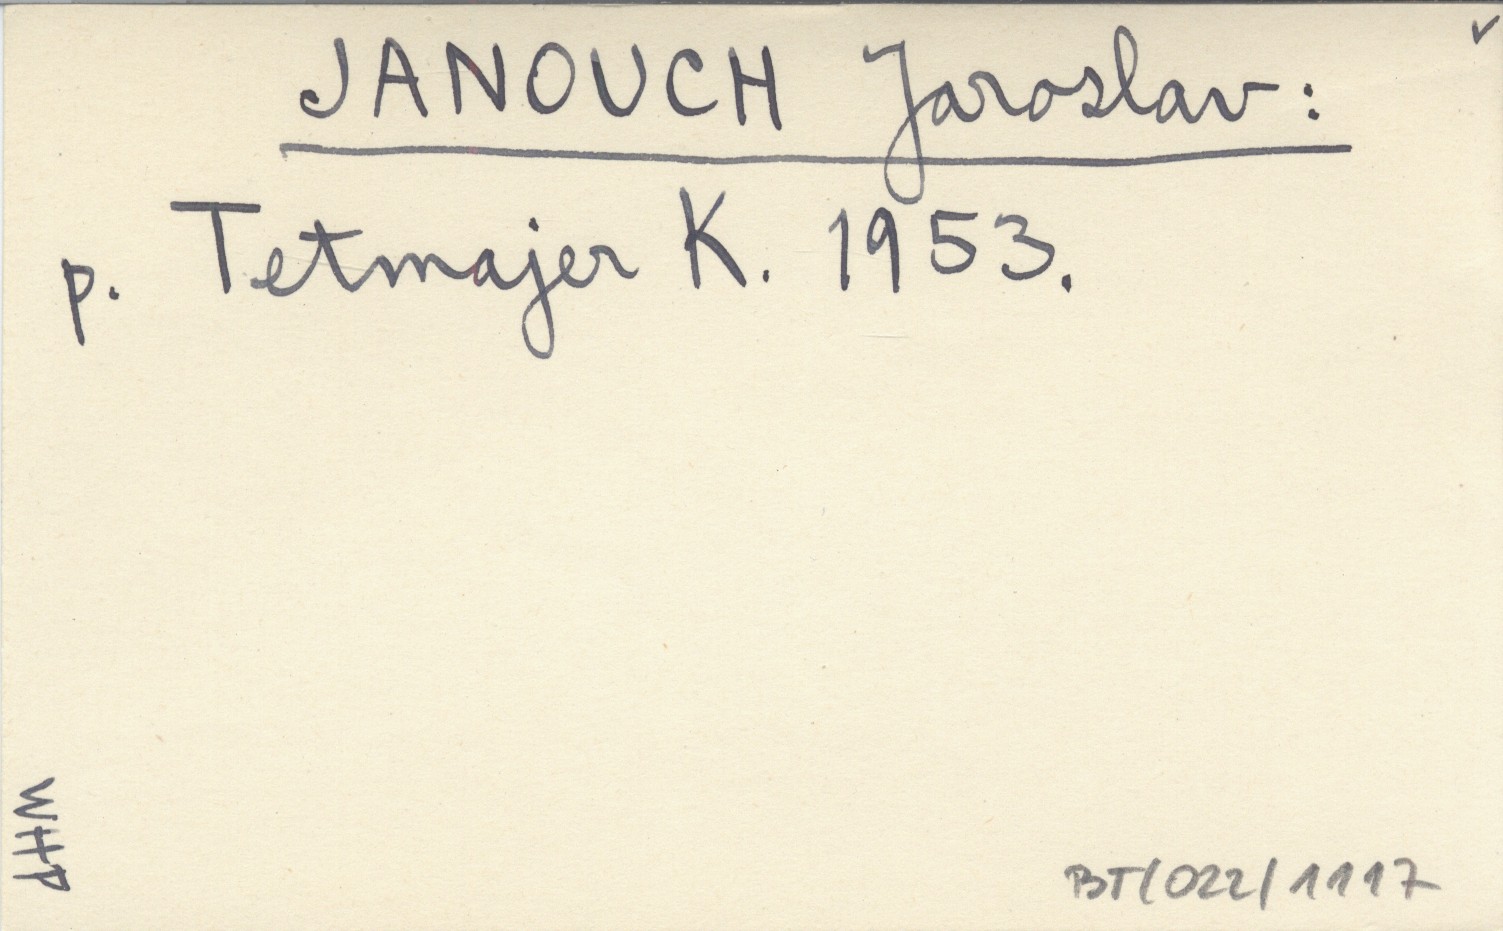 JANOUCH Jaroslav:
p. Tetmajer K. 1953.
WHP
BT/022/1117